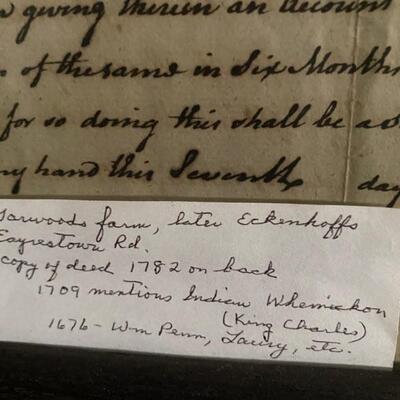 giving therein an Account
of the same in Six Months
for so doing this shall be a
my hand this Seventh day
Garwoods farm, later Eckenhoffs
Eayrestown Rd.
copy of deed 1782 on back
1709 mentions Indian Whemickon
(King Charles)
1676 - Wm Penn, Laury, etc.